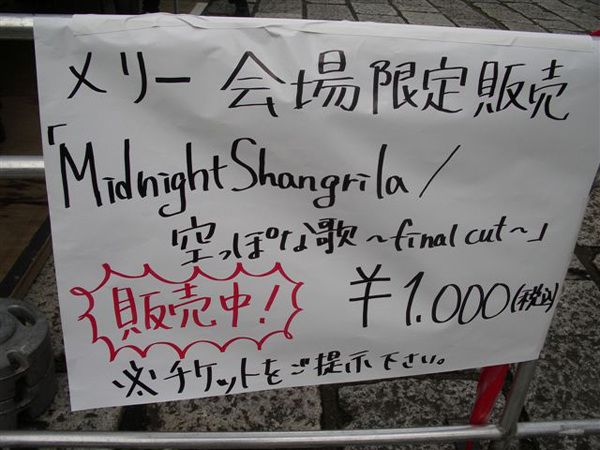 メリー 会場限定販売
「Midnight Shangrila /
空っぽな歌 ~final cut~」
販売中! ¥1.000(税込)
※チケットをご提示下さい。